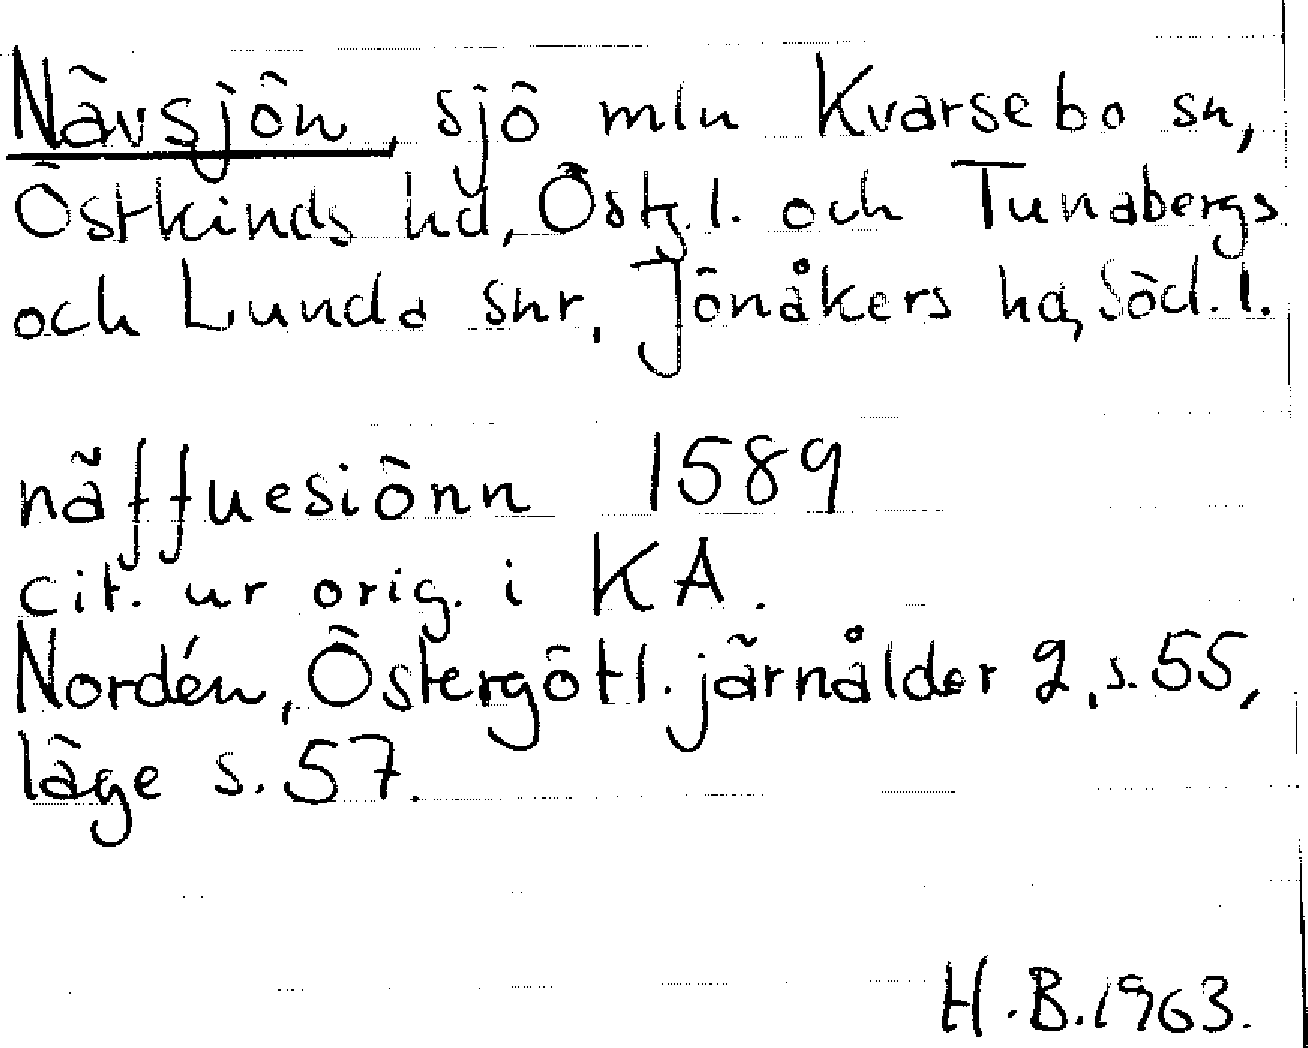 Nävsjön, sjö mln Kvarsebo sn,
Östkinds hd, Östg.l. och Tunabergs
och Lunda snr, Jönåkers hd, Söd.l.
näffuesiönn 1589
cit. ur orig. i KA.
Nordén, Östergötl. järnålder 2, s. 55,
läge s. 57.
H.B. 1963.